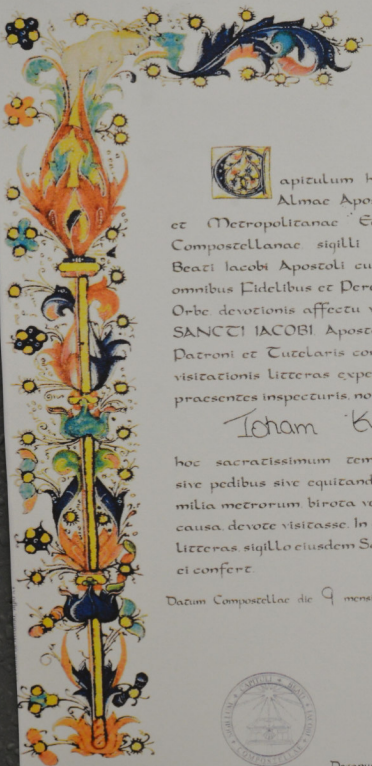 Capitulum h
Almae Apos
et Metropolitanae E
Compostellanae sigilli
Beati Iacobi Apostoli cu
omnibus Fidelibus et Pere
Orbe devotionis affectu v
SANCTI IACOBI Apost
Patroni et Tutelaris con
visitationis litteras expe
praesentes inspecturis, no
hoc sacratissimum tem
sive pedibus sive equitand
milia metrorum, birota ve
causa, devote visitasse. In
litteras, sigillo eiusdem Sa
ei confert
Datum Compostellae die 9 mens